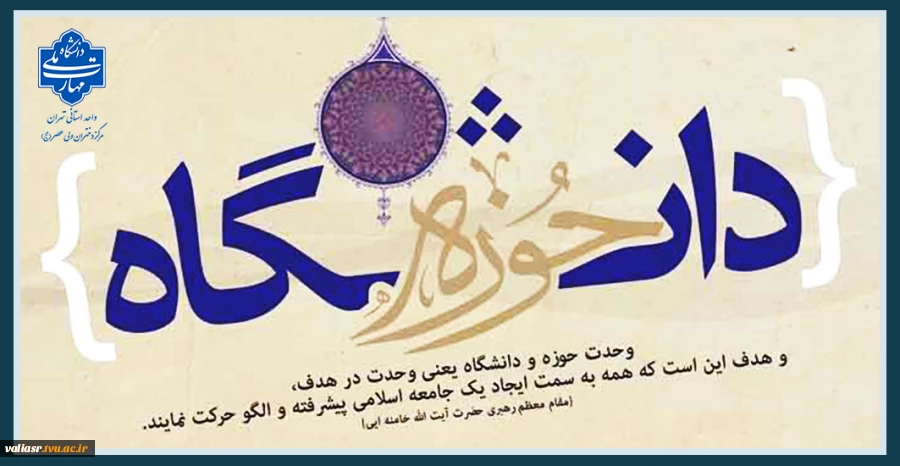 دانشگاه ملی مهارت
واحد استانی تهران
مرکز دختران ولی عصر(عج)
دانشگاه
حوزه
وحدت حوزه و دانشگاه یعنی وحدت در هدف،
و هدف این است که همه به سمت ایجاد یک جامعه اسلامی پیشرفته و الگو حرکت نمایند.
(مقام معظم رهبری حضرت آیت الله خامنه ایی)
valiasr.tvu.ac.ir